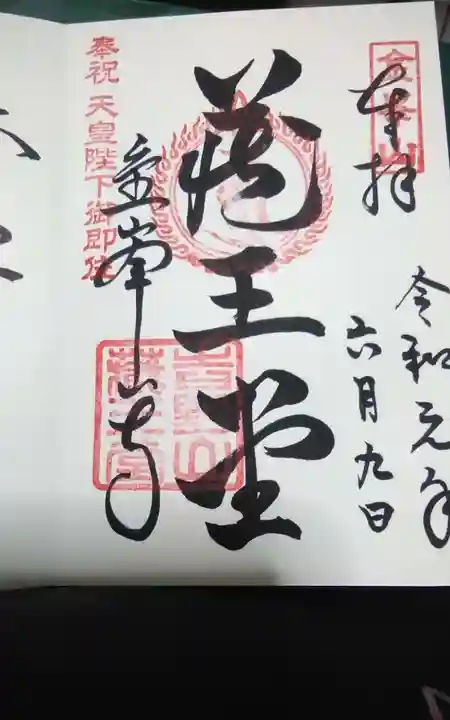 奉拝
金峯山
令和元年
六月九日
蔵王堂
金峯山寺
奉祝 天皇陛下御即位